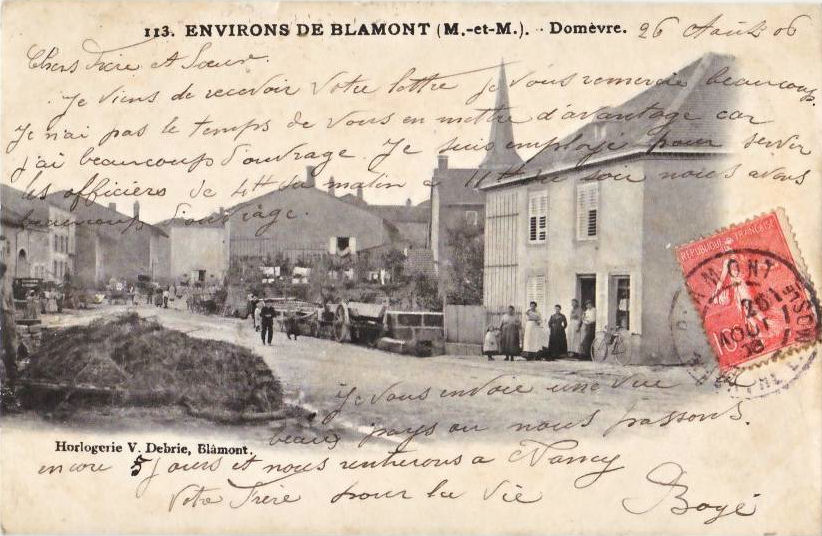 113. ENVIRONS DE BLAMONT (M.-et-M.). - Domèvre. 26 Août 06
Chers Frère et Sœur.
Je viens de recevoir votre lettre je vous remercie beaucoup.
Je n'ai pas le temps de vous en mettre d'avantage car
j'ai beaucoup d'ouvrage. Je suis employé pour servir
les officiers de 4H du matin a 11H du soir nous avons
beaucoup d'ouvrage.
REPUBLIQUE FRANÇAISE
BLAMONT
26
AOUT
10c
Je vous envoie une vue du
beau pays ou nous passons.
Horlogerie V. Debrie, Blâmont.
encore 5 jours et nous rentrerons a Nancy
Votre Frère pour la vie Bogé